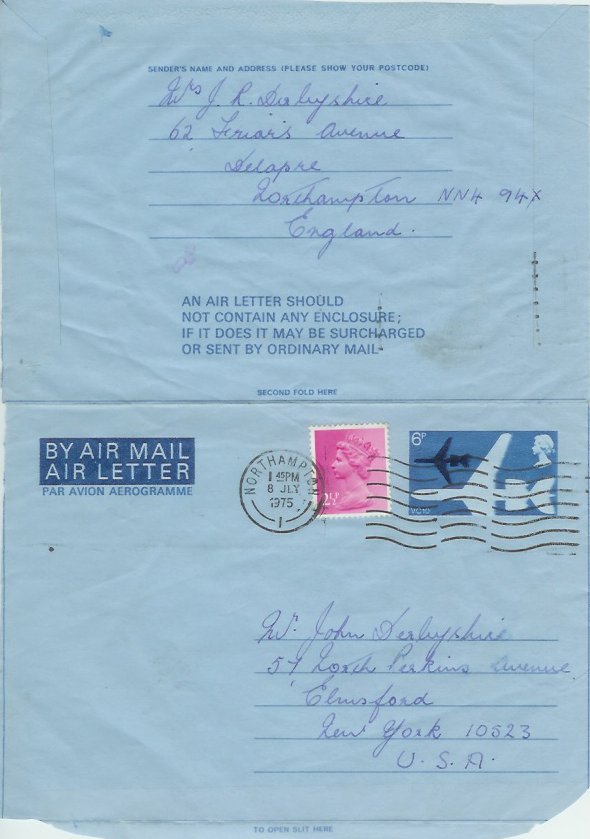 SENDER'S NAME AND ADDRESS (PLEASE SHOW YOUR POSTCODE)
Mrs J. R. Derbyshire
62 Friars Avenue
Delapre
Northampton NN4 94X
England.
AN AIR LETTER SHOULD
NOT CONTAIN ANY ENCLOSURE;
IF IT DOES IT MAY BE SURCHARGED
OR SENT BY ORDINARY MAIL
SECOND FOLD HERE
BY AIR MAIL
AIR LETTER
PAR AVION AEROGRAMME
NORTHAMPTON
1 45PM
8 JLY
1975
1
2½P
6P
VC10
Mr. John Derbyshire
57 North Perkins Avenue
Elmsford
New York 10523
U. S. A.
TO OPEN SLIT HERE